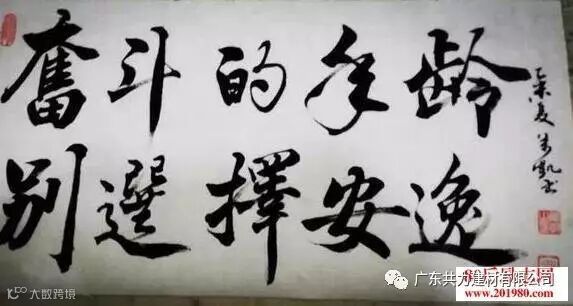 奮斗的年齡
别選擇安逸
大数跨境
广东共力建材有限公司
www.201980.com